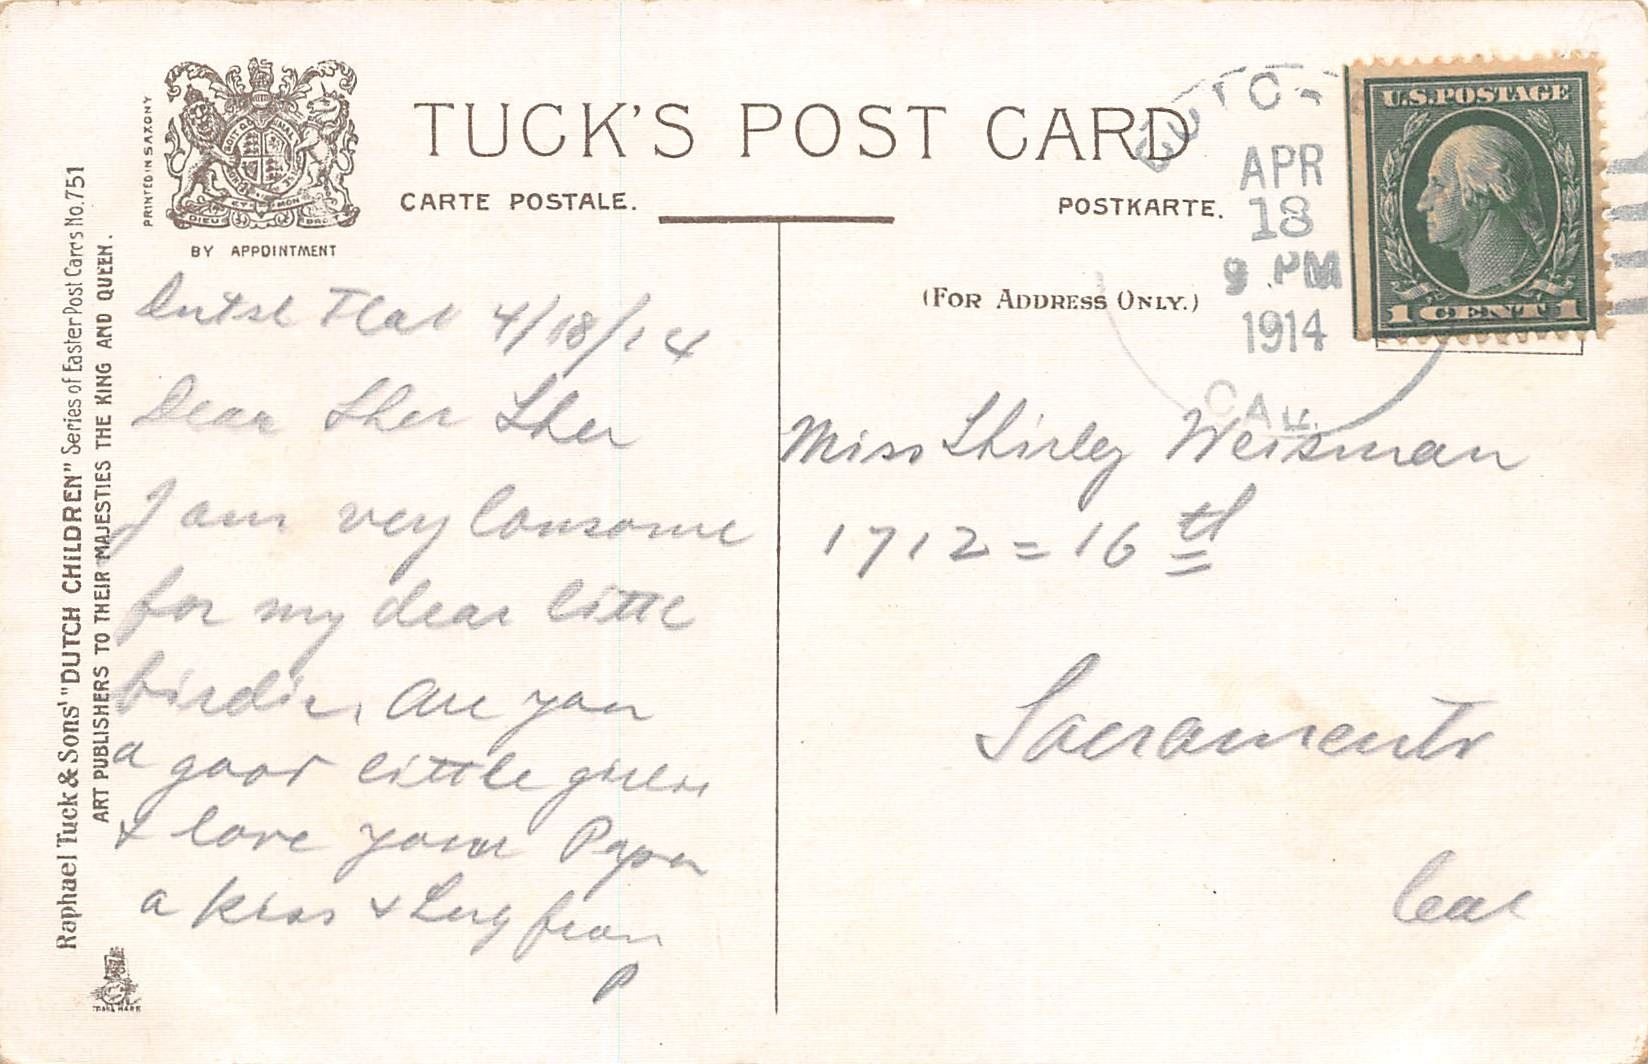 TUCK'S POST CARD
CARTE POSTALE.
POSTKARTE.
(FOR ADDRESS ONLY.)
PRINTED IN SAXONY
DIEU ET MON DROIT
BY APPOINTMENT
Raphael Tuck & Sons' "DUTCH CHILDREN" Series of Easter Post Cards No. 751
ART PUBLISHERS TO THEIR MAJESTIES THE KING AND QUEEN.
TRADE MARK
APR
18
9 PM
1914
CAL.
U.S. POSTAGE
1 CENT 1
Dutch Flat 4/18/14
Dear Sher Sher
I am very lonsome
for my dear little
birdie, are you
a good little girlie
& love your Papa
a kiss & hug from
P
Miss Shirley Weisman
1712 = 16th
Sacramento
Cal